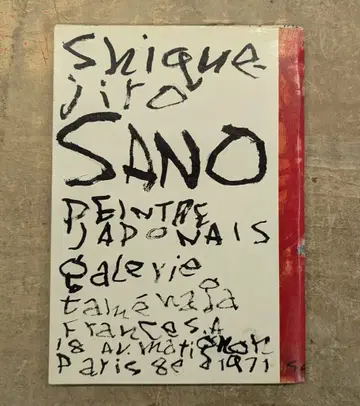 Shique-
jiro
SANO
PEINTRE
JAPONAIS
galerie
taménaga
France S.A
18 AV. matignon
Paris 8e 1971